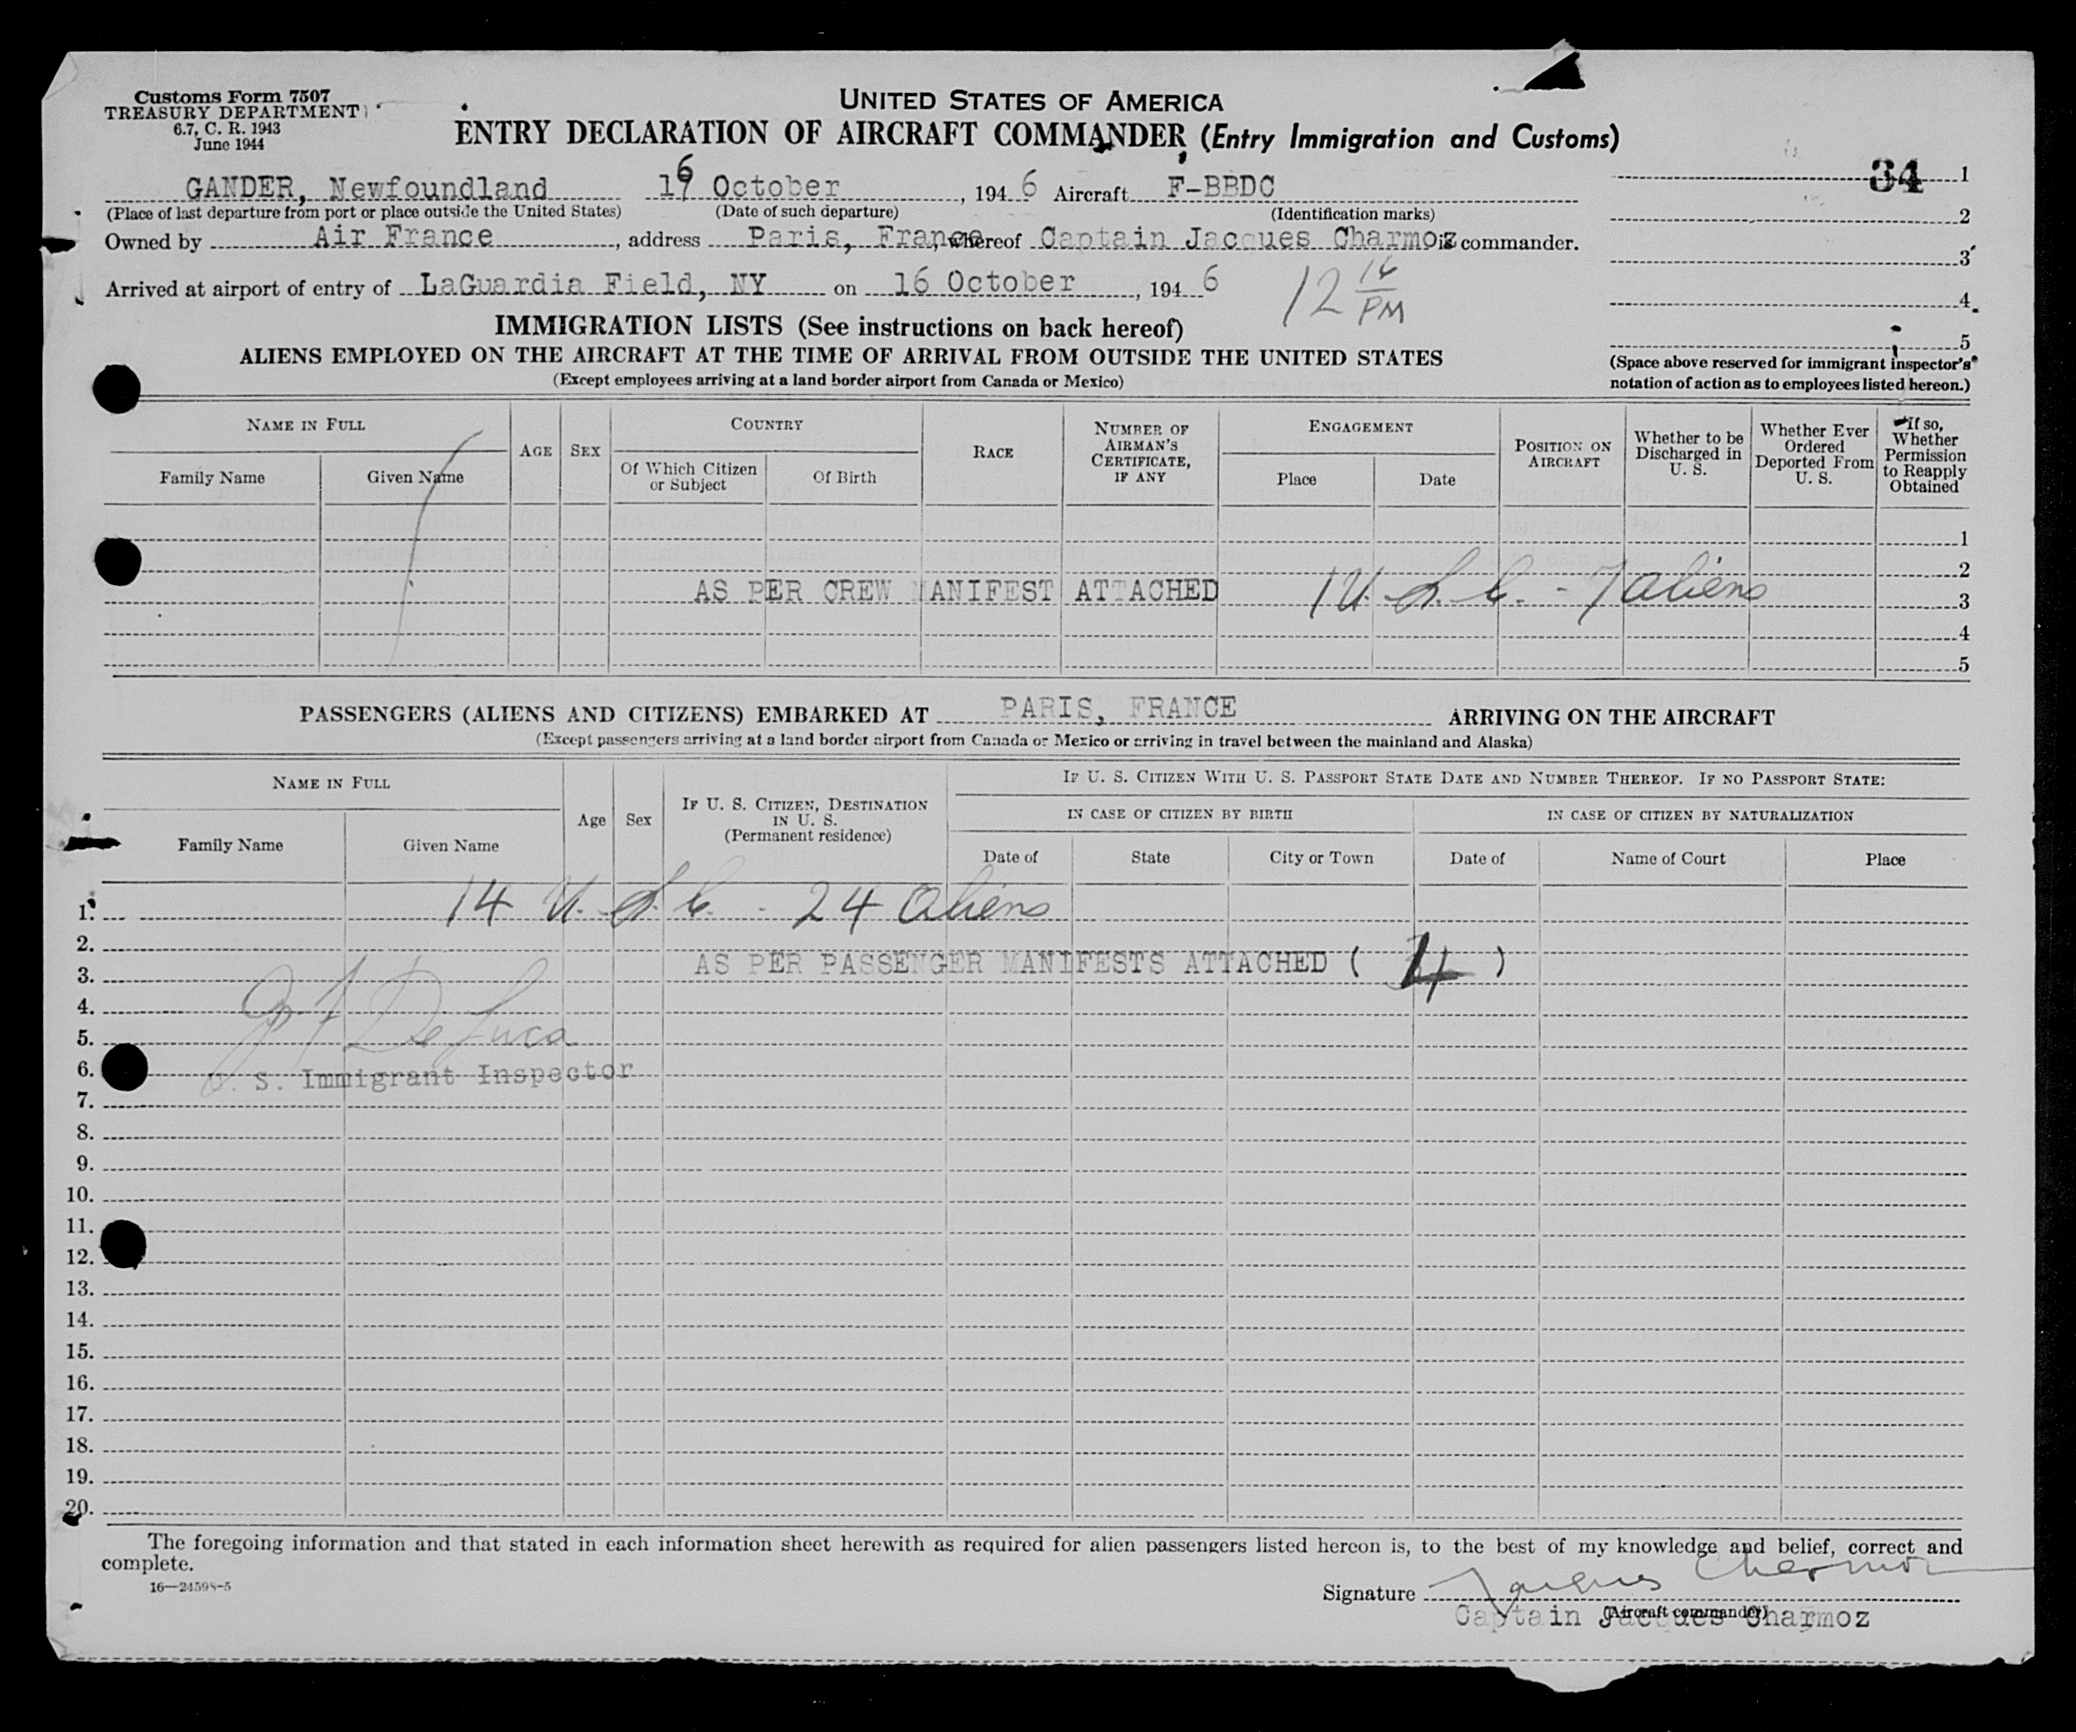 Customs Form 7507
TREASURY DEPARTMENT
6.7, C. R. 1943
June 1944
UNITED STATES OF AMERICA
ENTRY DECLARATION OF AIRCRAFT COMMANDER (Entry Immigration and Customs)
34 1
GANDER, Newfoundland 16 October, 1946 Aircraft F-BBDC
(Place of last departure from port or place outside the United States) (Date of such departure) (Identification marks)
2
Owned by Air France, address Paris, France, whereof Captain Jacques Charmoz is commander.
3
Arrived at airport of entry of LaGuardia Field, NY on 16 October, 1946 12 16 PM
4
IMMIGRATION LISTS (See instructions on back hereof)
5
ALIENS EMPLOYED ON THE AIRCRAFT AT THE TIME OF ARRIVAL FROM OUTSIDE THE UNITED STATES
(Except employees arriving at a land border airport from Canada or Mexico)
(Space above reserved for immigrant inspector's
notation of action as to employees listed hereon.)
NAME IN FULL
Family Name
Given Name
AGE
SEX
COUNTRY
Of Which Citizen
or Subject
Of Birth
RACE
NUMBER OF
AIRMAN'S
CERTIFICATE,
IF ANY
ENGAGEMENT
Place
Date
POSITION ON
AIRCRAFT
Whether to be
Discharged in
U. S.
Whether Ever
Ordered
Deported From
U. S.
If so,
Whether
Permission
to Reapply
Obtained
1
2
AS PER CREW MANIFEST ATTACHED 1 U. S. C. - 7 aliens
3
4
5
PASSENGERS (ALIENS AND CITIZENS) EMBARKED AT PARIS, FRANCE ARRIVING ON THE AIRCRAFT
(Except passengers arriving at a land border airport from Canada or Mexico or arriving in travel between the mainland and Alaska)
NAME IN FULL
Family Name
Given Name
Age
Sex
IF U. S. CITIZEN, DESTINATION
IN U. S.
(Permanent residence)
IF U. S. CITIZEN WITH U. S. PASSPORT STATE DATE AND NUMBER THEREOF. IF NO PASSPORT STATE:
IN CASE OF CITIZEN BY BIRTH
IN CASE OF CITIZEN BY NATURALIZATION
Date of
State
City or Town
Date of
Name of Court
Place
1. 14 U. S. C. - 24 aliens
2.
AS PER PASSENGER MANIFESTS ATTACHED ( 4 )
3.
4.
De Luca
5.
6.
U. S. Immigrant Inspector
7.
8.
9.
10.
11.
12.
13.
14.
15.
16.
17.
18.
19.
20.
The foregoing information and that stated in each information sheet herewith as required for alien passengers listed hereon is, to the best of my knowledge and belief, correct and
complete.
16—24598-5
Signature Jacques Charmoz
(Aircraft commander)
Captain Jacques Charmoz